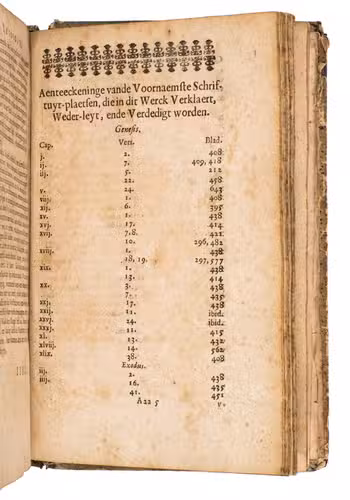 Aenteeckeninge vande Voornaemste Schrif-
tuyr-plaetsen, die in dit Werck Verklaert,
Weder-leyt, ende Verdedigt worden.
Genesis.
Cap. Vers. Blad.
j. 2. 408
ij. 7. 409, 418
iij. 5. 212
22. 458
v. 24. 643
viij. 1. 438
xij. 6. 395
1. 438
17. 414
xvij. 7.8. 422
10. 296, 482
xviij. 1. 438
18, 19. 297, 577
xix. 1. 438
13. 414
xx. 3. 438
7. 435
xxj. 17. 438
xxij. 11. ibid.
24. ibid.
xxxj. 11. 415
xl. 13. 432
xlviij. 14. 562
xlix. 38. 408
Exodus.
iij. 2. 438
iiij. 16. 435
41. 451
v.